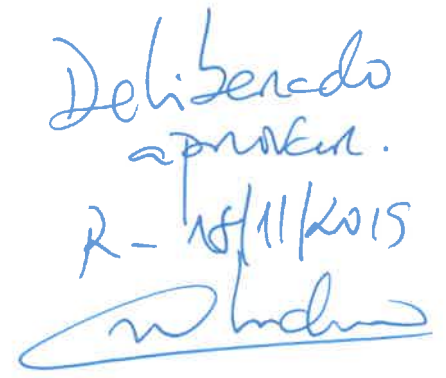 Deliberado
aprovar.
R- 18/11/2019